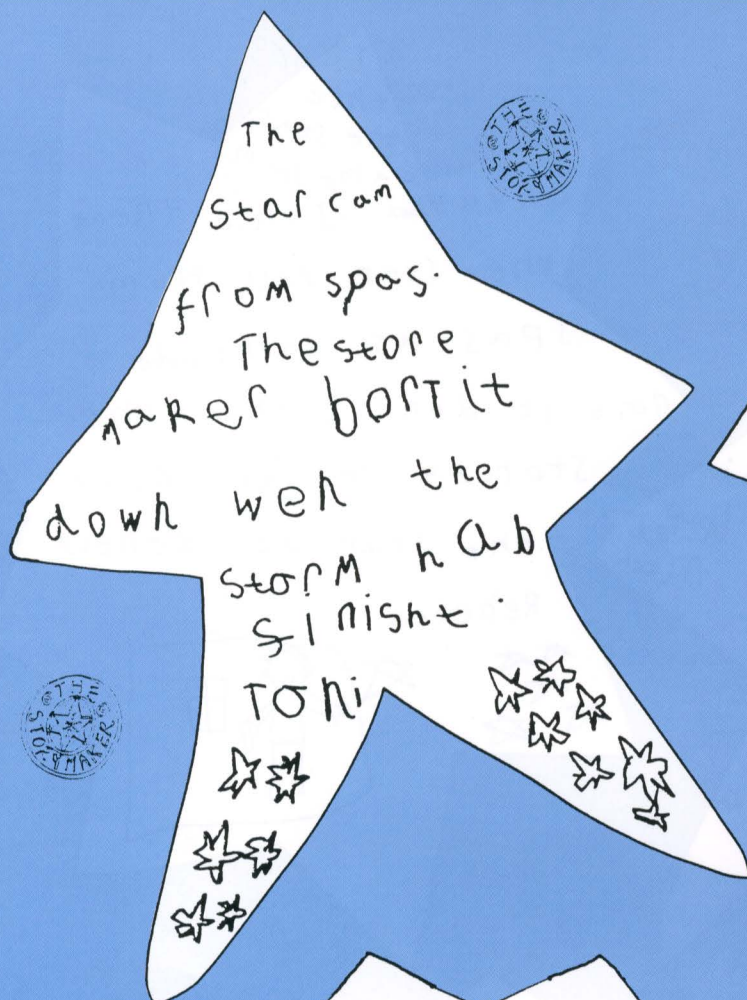 The
star cam
from spas.
The store
maker bort it
down wen the
storm hab
finisht.
Toni
THE
STORYMAKER
THE
STORYMAKER